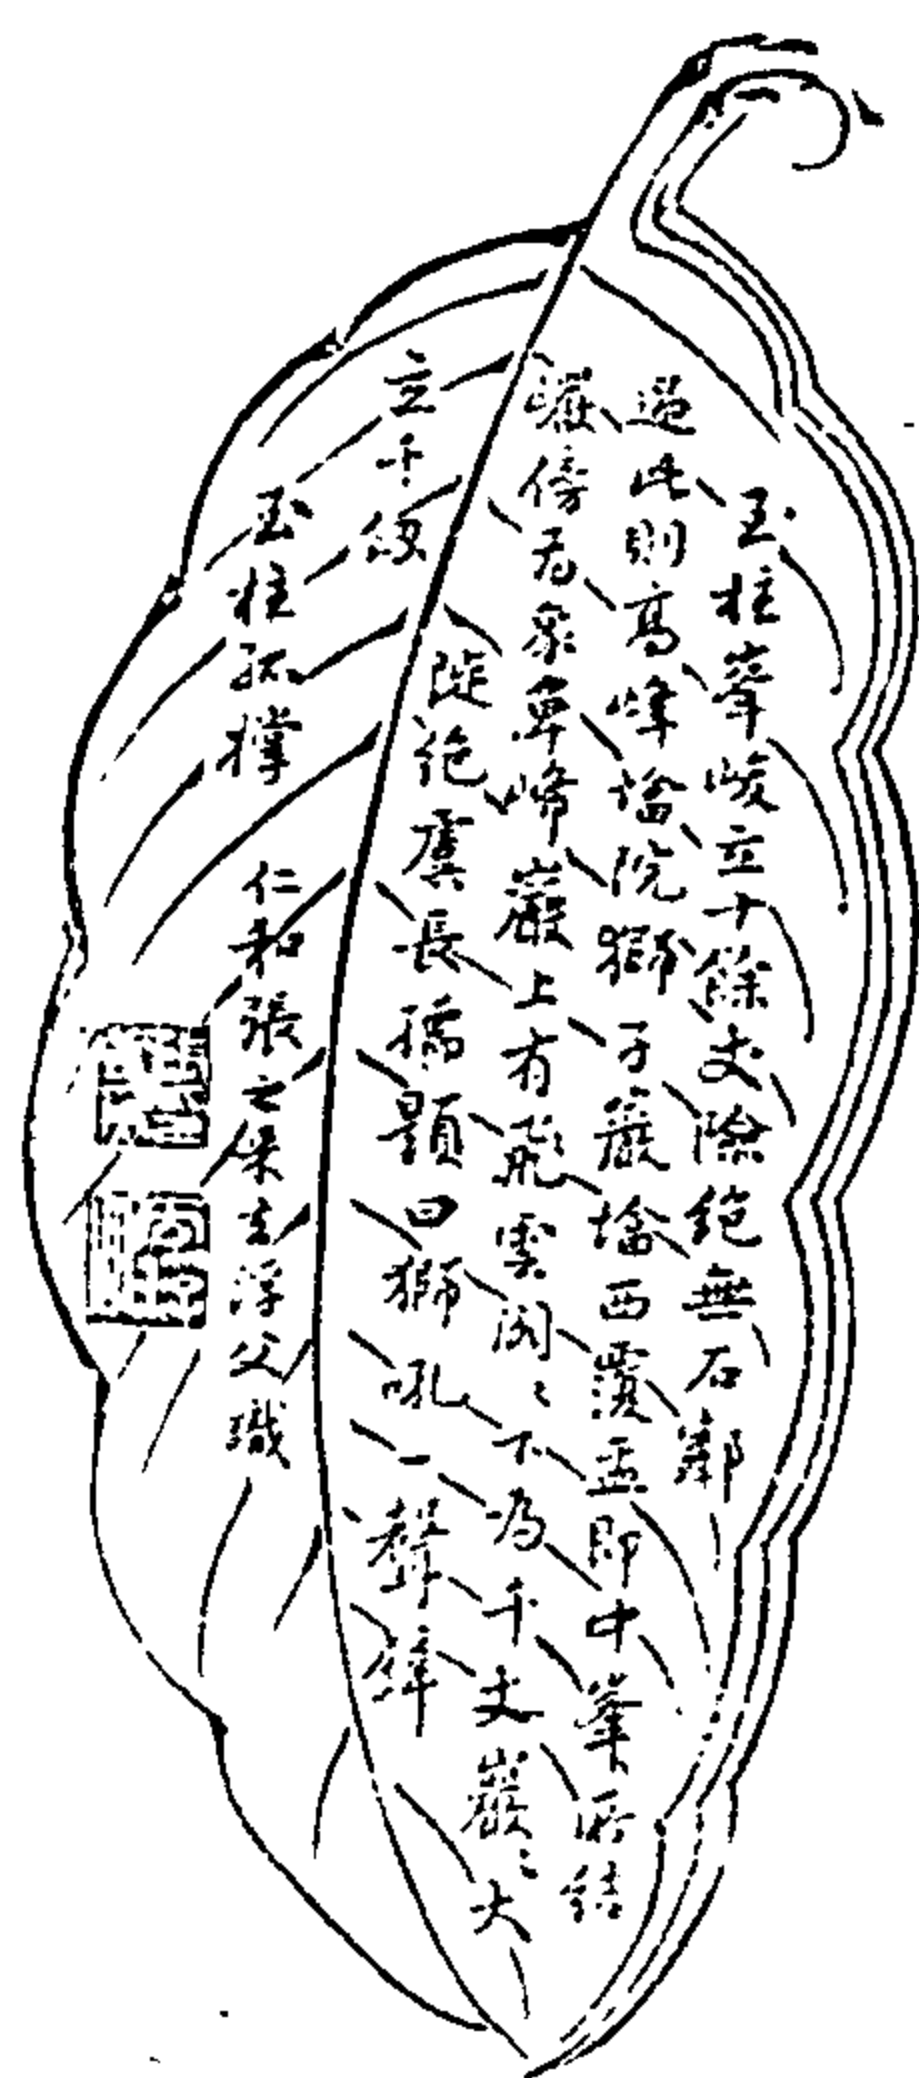 玉柱峯峻立十餘丈險絶無石鄰
過此則高峰塔院獅子巖塔西覆盂即中峯所結
巖傍爲象鼻峰巖上有飛雲閣〻下为千丈巖〻大
陡絶虞長孺題曰獅吼一聲壁
立千仞
玉柱孤撑
仁和張之杲玄浮父識